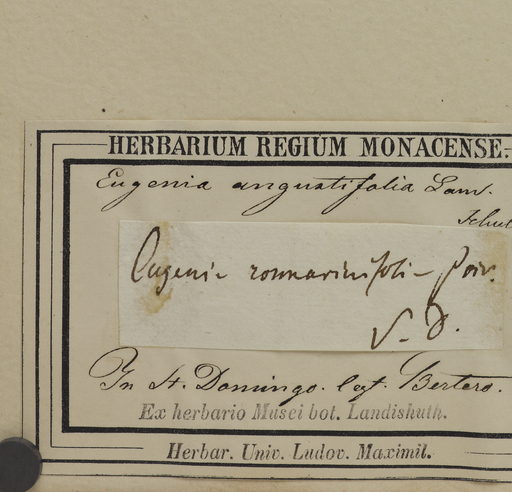 HERBARIUM REGIUM MONACENSE.
Eugenia angustifolia Lam.
Eugenia rosmarinifolia Poir.
S. D.
In St. Domingo. legt. Bertero.
Ex herbario Musei bot. Landishuth.
Herbar. Univ. Ludov. Maximil.